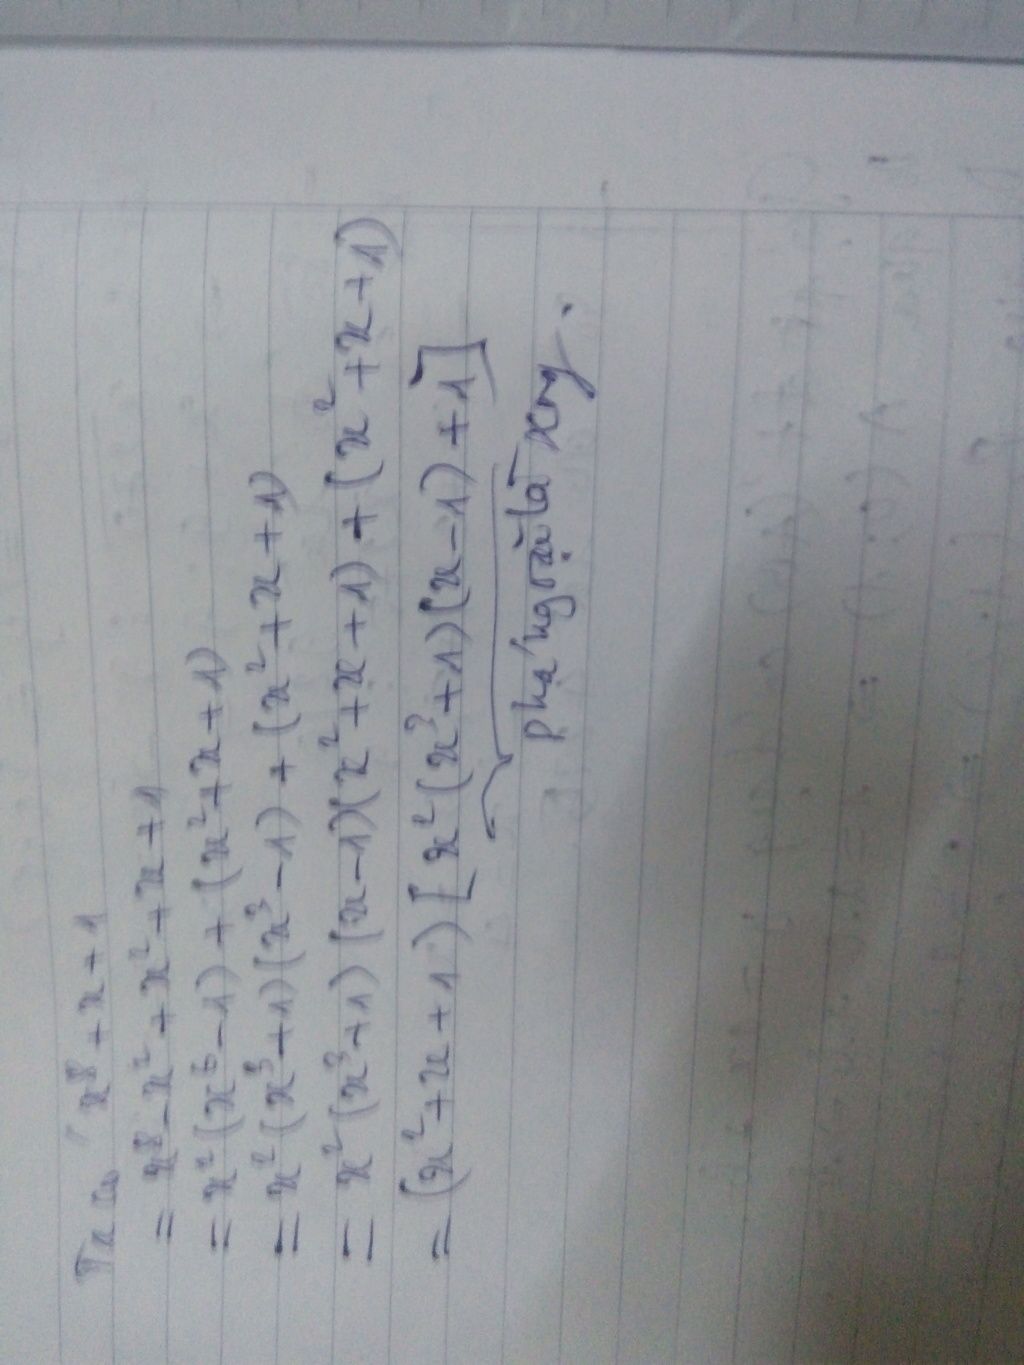 Ta có x⁸ + x + 1
= x⁸ - x² + x² + x + 1
= x² (x⁶ - 1) + (x² + x + 1)
= x² (x³ + 1) (x³ - 1) + (x² + x + 1)
= x² (x³ + 1) (x - 1) (x² + x + 1) + (x² + x + 1)
= (x² + x + 1) [x² (x³ + 1) (x - 1) + 1]
phá ngoặc là xong.